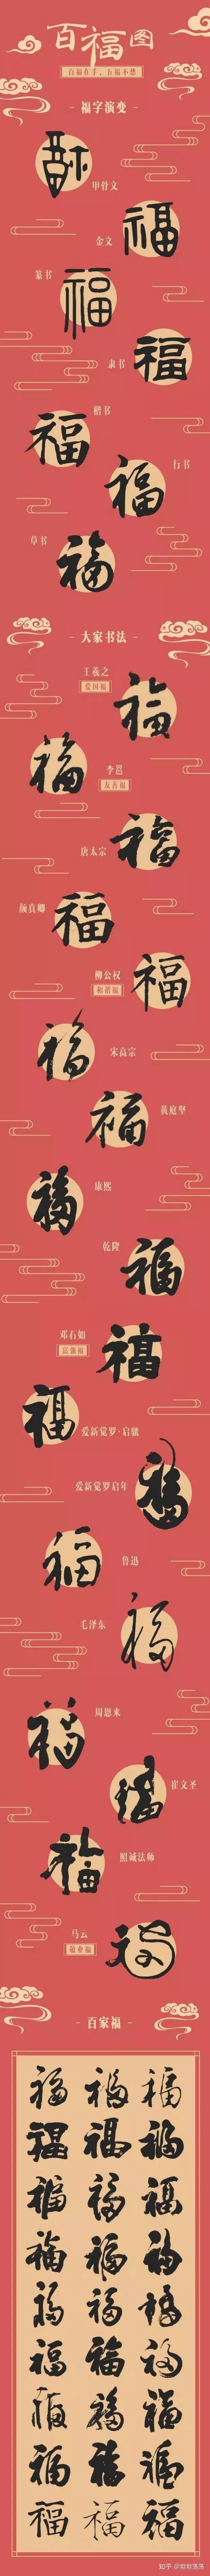 百福图
百福在手，五福不愁
- 福字演变 -
福
甲骨文
金文
福
篆书
福
隶书
福
福
楷书
福
行书
草书
福
- 大家书法 -
王羲之
爱国福
福
福
李邕
友善福
唐太宗
福
颜真卿
福
柳公权
和谐福
福
福
宋高宗
福
黄庭坚
福
康熙
乾隆
福
邓石如
富强福
福
福
爱新觉罗·启骧
爱新觉罗启年
福
福
鲁迅
毛泽东
福
福
周恩来
福
崔文圣
福
照诚法师
马云
敬业福
福
- 百家福 -
福 福 福
福 福 福
福 福 福
福 福 福
福 福 福
福 福 福
福 福 福
福 福 福
福 福 福